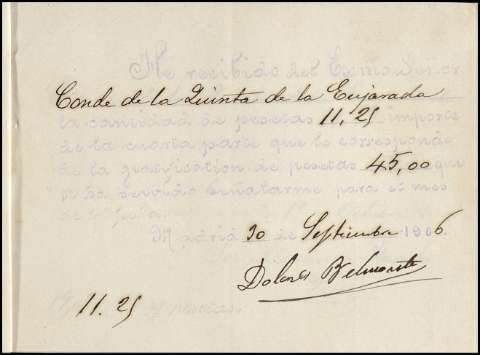 He recibido del Exmo Señor
Conde de la Quinta de la Enjarada
la cantidad de pesetas 11,25 importe
de la cuarta parte que le corresponde
de la gratificacion de pesetas 45,00 que
se ha servido señalarme para el mes
de la fecha.
Madrid 30 de Septiembre 1906
Dolores Belmonte
11.25 pesetas